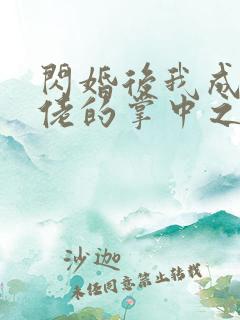 閃婚後我成
佬的掌中之
沙迦
未经同意禁止转载